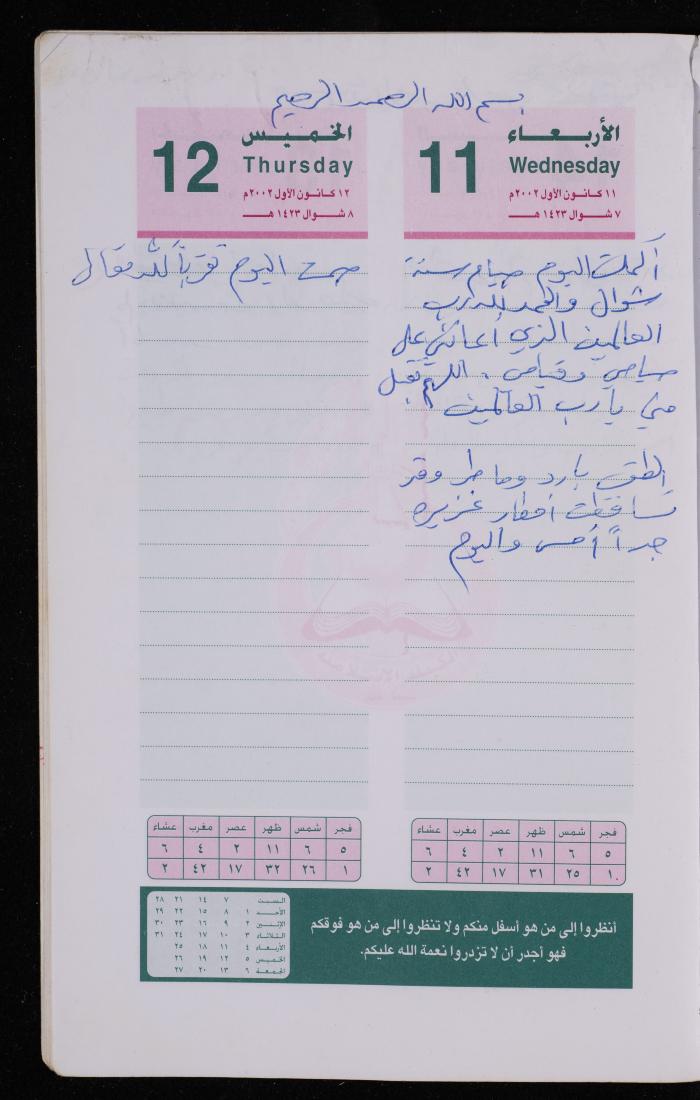 بسم الله الرحمن الرحيم
الأربعاء
11
Wednesday
١١ كانون الأول ٢٠٠٢م
٧ شوال ١٤٢٣ هـ
أكملت اليوم صيام ستة
شوال والحمد لله رب
العالمين الذي أعانني على
صيامي وقيامي، اللهم تقبل
مني يا رب العالمين
الطقس بارد وماطر وقد
تساقطت أمطار غزيره
جداً أمس واليوم
الخميس
12
Thursday
١٢ كانون الأول ٢٠٠٢م
٨ شوال ١٤٢٣ هـ
صمت اليوم تقرباً لله تعالى
فجر شمس ظهر عصر مغرب عشاء
٥ ٦ ١١ ٢ ٤ ٦
١٠ ٢٥ ٣١ ١٧ ٤٢ ٢
فجر شمس ظهر عصر مغرب عشاء
٥ ٦ ١١ ٢ ٤ ٦
١ ٢٦ ٣٢ ١٧ ٤٢ ٢
أنظروا إلى من هو أسفل منكم ولا تنظروا إلى من هو فوقكم
فهو أجدر أن لا تزدروا نعمة الله عليكم.
السبت ٧ ١٤ ٢١ ٢٨
الأحد ١ ٨ ١٥ ٢٢ ٢٩
الإثنين ٢ ٩ ١٦ ٢٣ ٣٠
الثلاثاء ٣ ١٠ ١٧ ٢٤ ٣١
الأربعاء ٤ ١١ ١٨ ٢٥
الخميس ٥ ١٢ ١٩ ٢٦
الجمعة ٦ ١٣ ٢٠ ٢٧
الكتلة الإسلامية